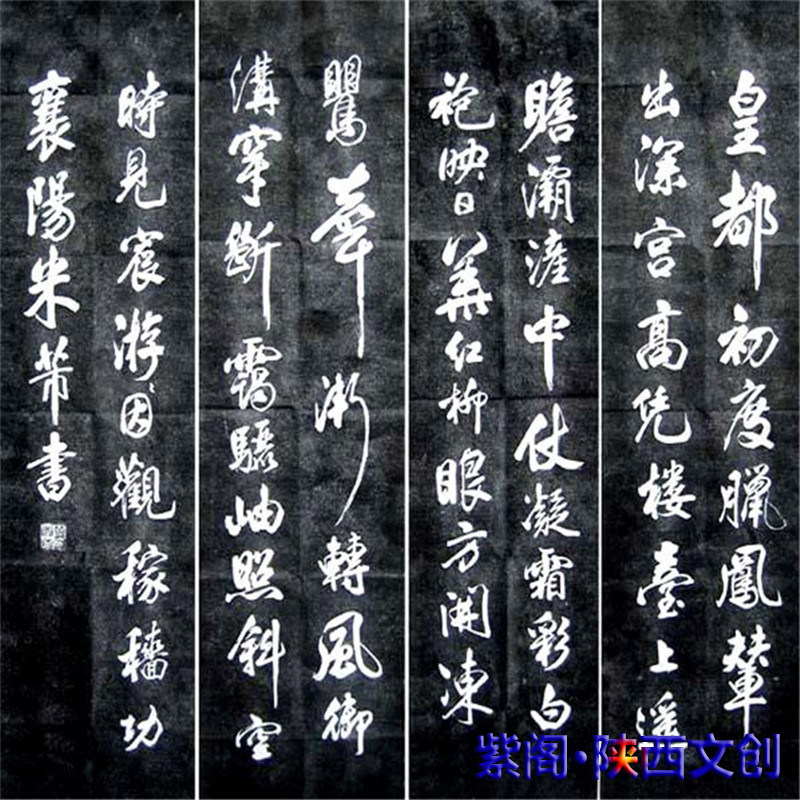 皇都初度臘鳳輦
出深宮高凭樓臺上遥
瞻灞滻中仗凝霜彩白
袍映日華紅柳眼方開凍
鸎聲漸轉風御
溝穿斷靄驪岫照斜空
時見宸游因觀稼穡功
襄陽米芾書
紫阁·陕西文创